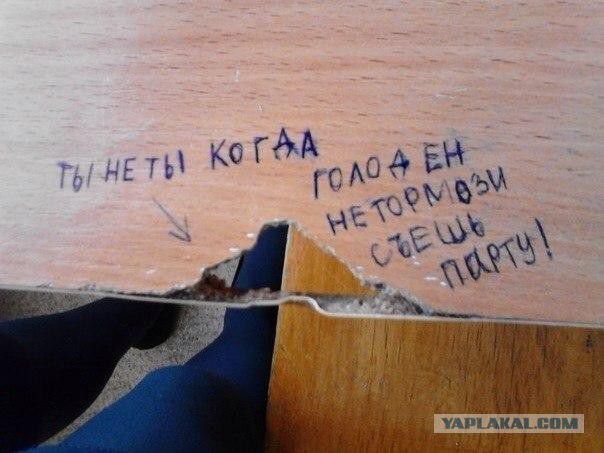 ТЫ НЕ ТЫ КОГДА
ГОЛОДЕН
НЕТОРМОЗИ
СЪЕШЬ
ПАРТУ!
YAPLAKAL.COM